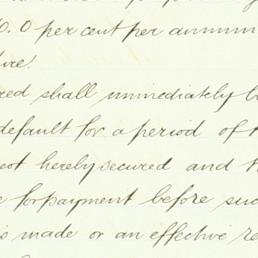 0.0 per cent per annum
ire.
red shall immediately b
default for a period of t
ot hereby secured and t
e for payment before suc
is made or an effective re